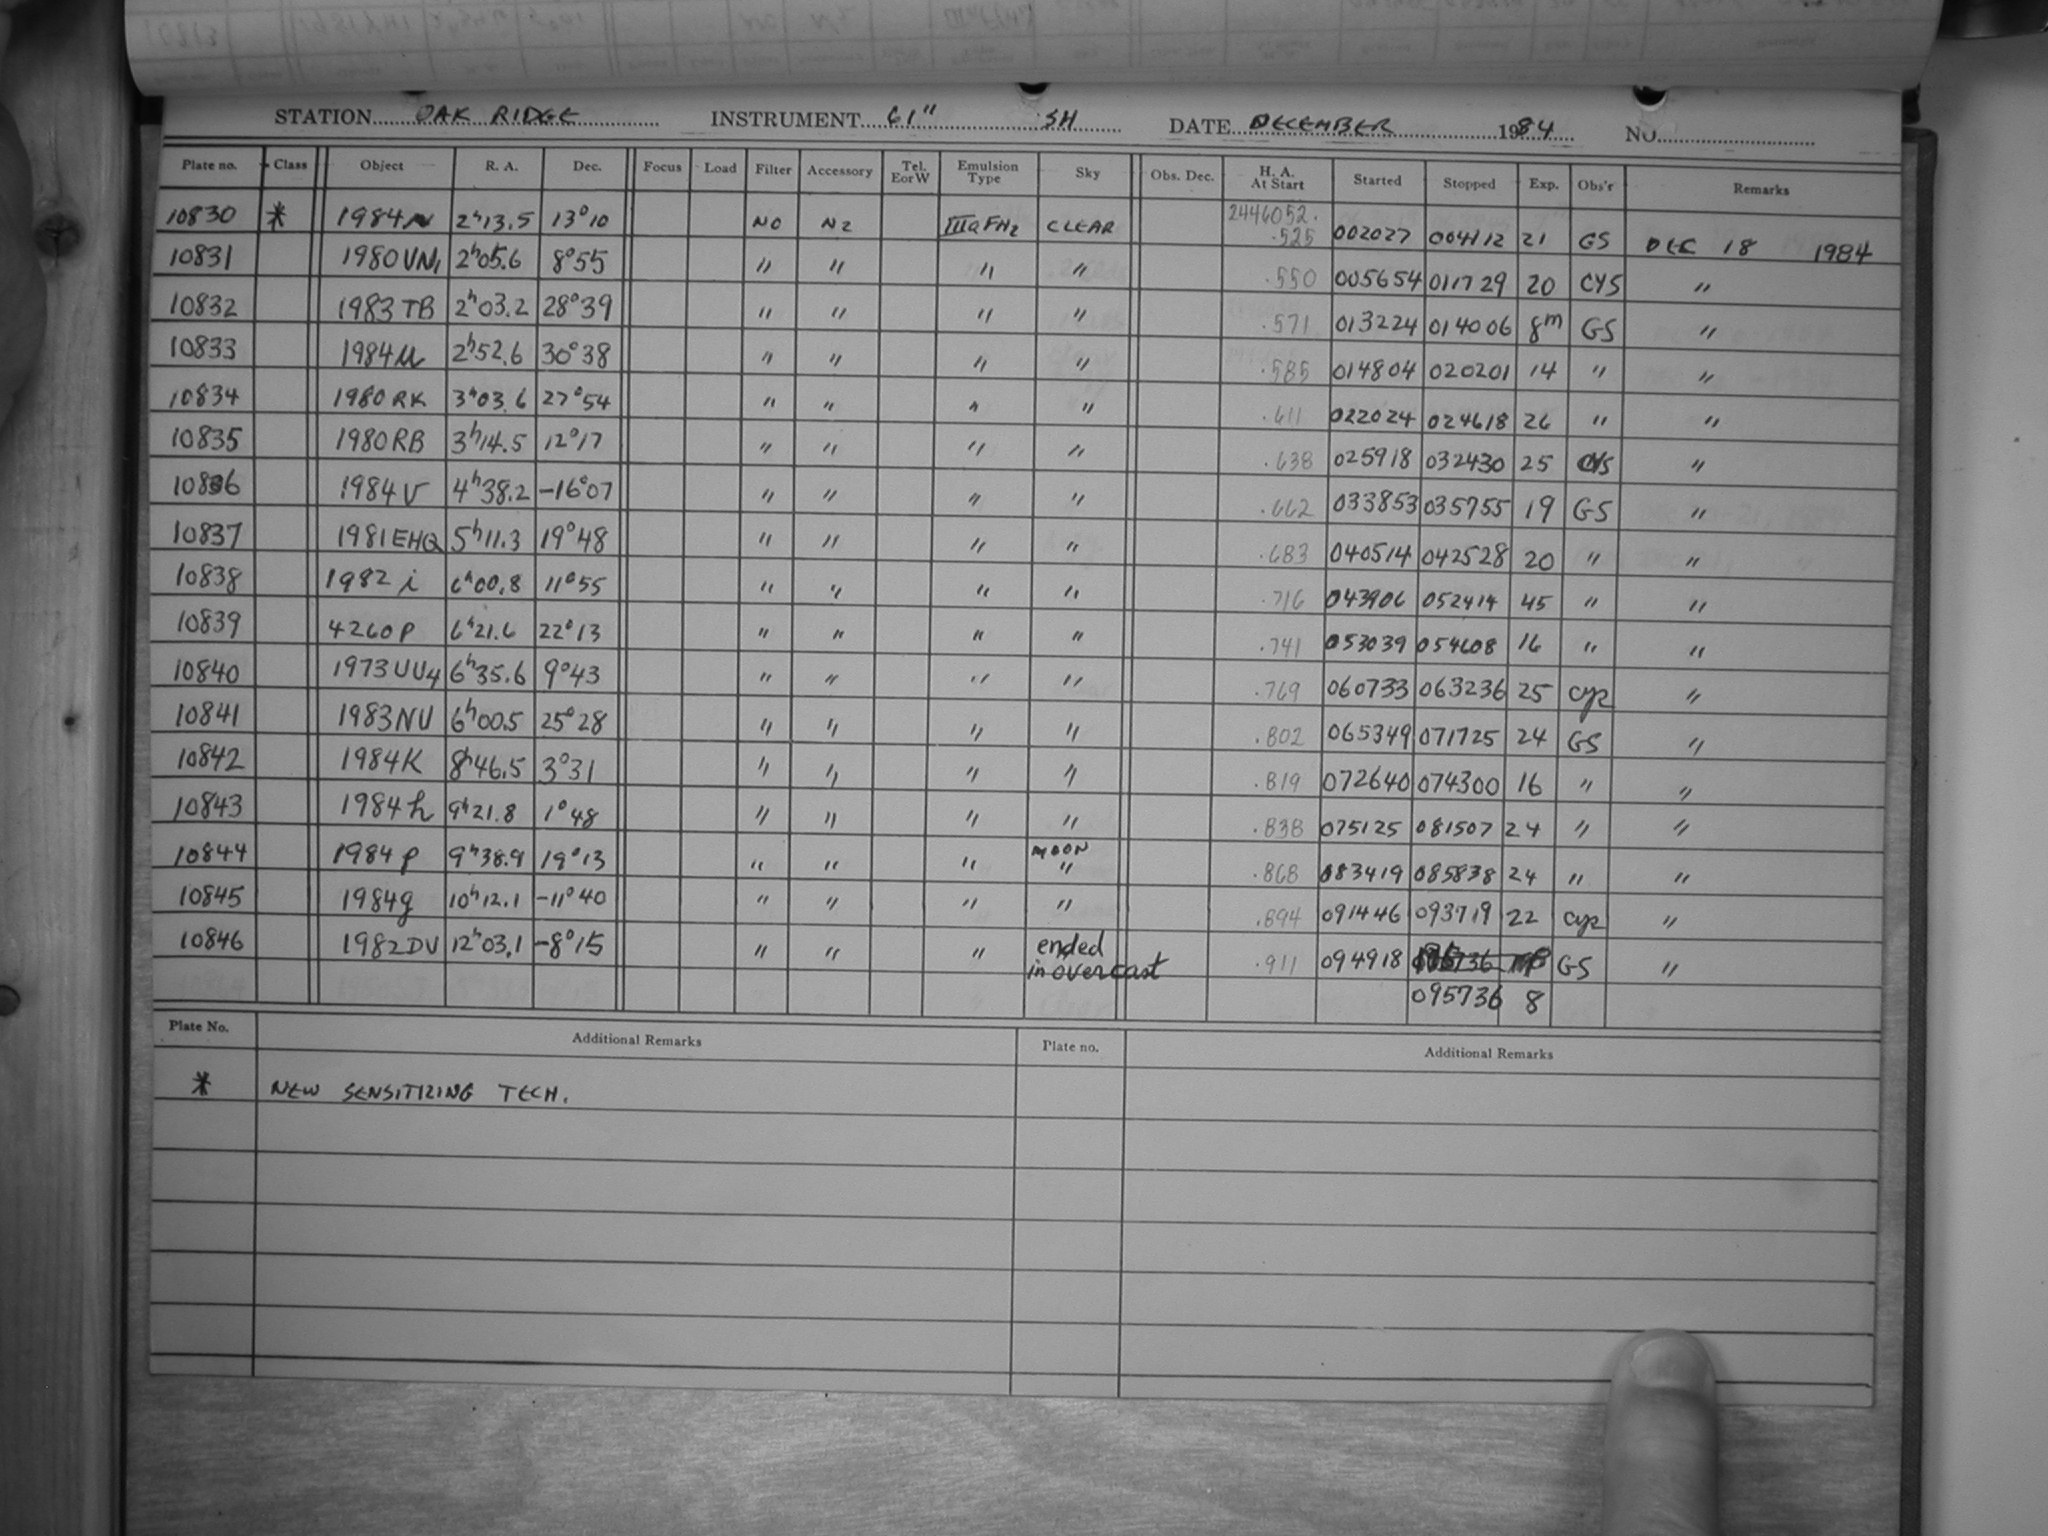 STATION OAK RIDGE INSTRUMENT 61" SH DATE DECEMBER 1984 NO.
Plate no. Class Object R. A. Dec. Focus Load Filter Accessory Tel. E or W Emulsion Type Sky Obs. Dec. H. A. At Start Started Stopped Exp. Obs'r Remarks
10830 * 1984 N 2h13.5 13°10 NO N2 IIIaFH2 CLEAR 2446052. .525 002027 004112 21 GS DEC 18 1984
10831 1980 UN1 2h05.6 8°55 " " " " .550 005654 011729 20 CYS "
10832 1983 TB 2h03.2 28°39 " " " " .571 013224 014006 8m GS "
10833 1984 U 2h52.6 30°38 " " " " .585 014804 020201 14 " "
10834 1980 RK 3h03.6 27°54 " " " " .611 022024 024618 26 " "
10835 1980 RB 3h14.5 12°17 " " " " .638 025918 032430 25 CYS "
10836 1984 V 4h38.2 -16°07 " " " " .662 033853 035755 19 GS "
10837 1981 EHQ 5h11.3 19°48 " " " " .683 040514 042528 20 " "
10838 1982 i 6h00.8 11°55 " " " " .716 043906 052414 45 " "
10839 4260P 6h21.6 22°13 " " " " .741 053039 054608 16 " "
10840 1973 UU4 6h35.6 9°43 " " " " .769 060733 063236 25 "
10841 1983 NU 6h00.5 25°28 " " " " .802 065349 071725 24 GS "
10842 1984 K 8h46.5 3°31 " " " " .819 072640 074300 16 " "
10843 1984 h 9h21.8 1°48 " " " " .838 075125 081507 24 " "
10844 1984 p 9h38.9 19°13 " " " MOON " .868 083419 085838 24 " "
10845 1984g 10h12.1 -11°40 " " " " .894 091446 093719 22 "
10846 1982 DV 12h03.1 -8°15 " " " ended in overcast .911 094918 GS "
095736 8
Plate No. Additional Remarks Plate no. Additional Remarks
* NEW SENSITIZING TECH.